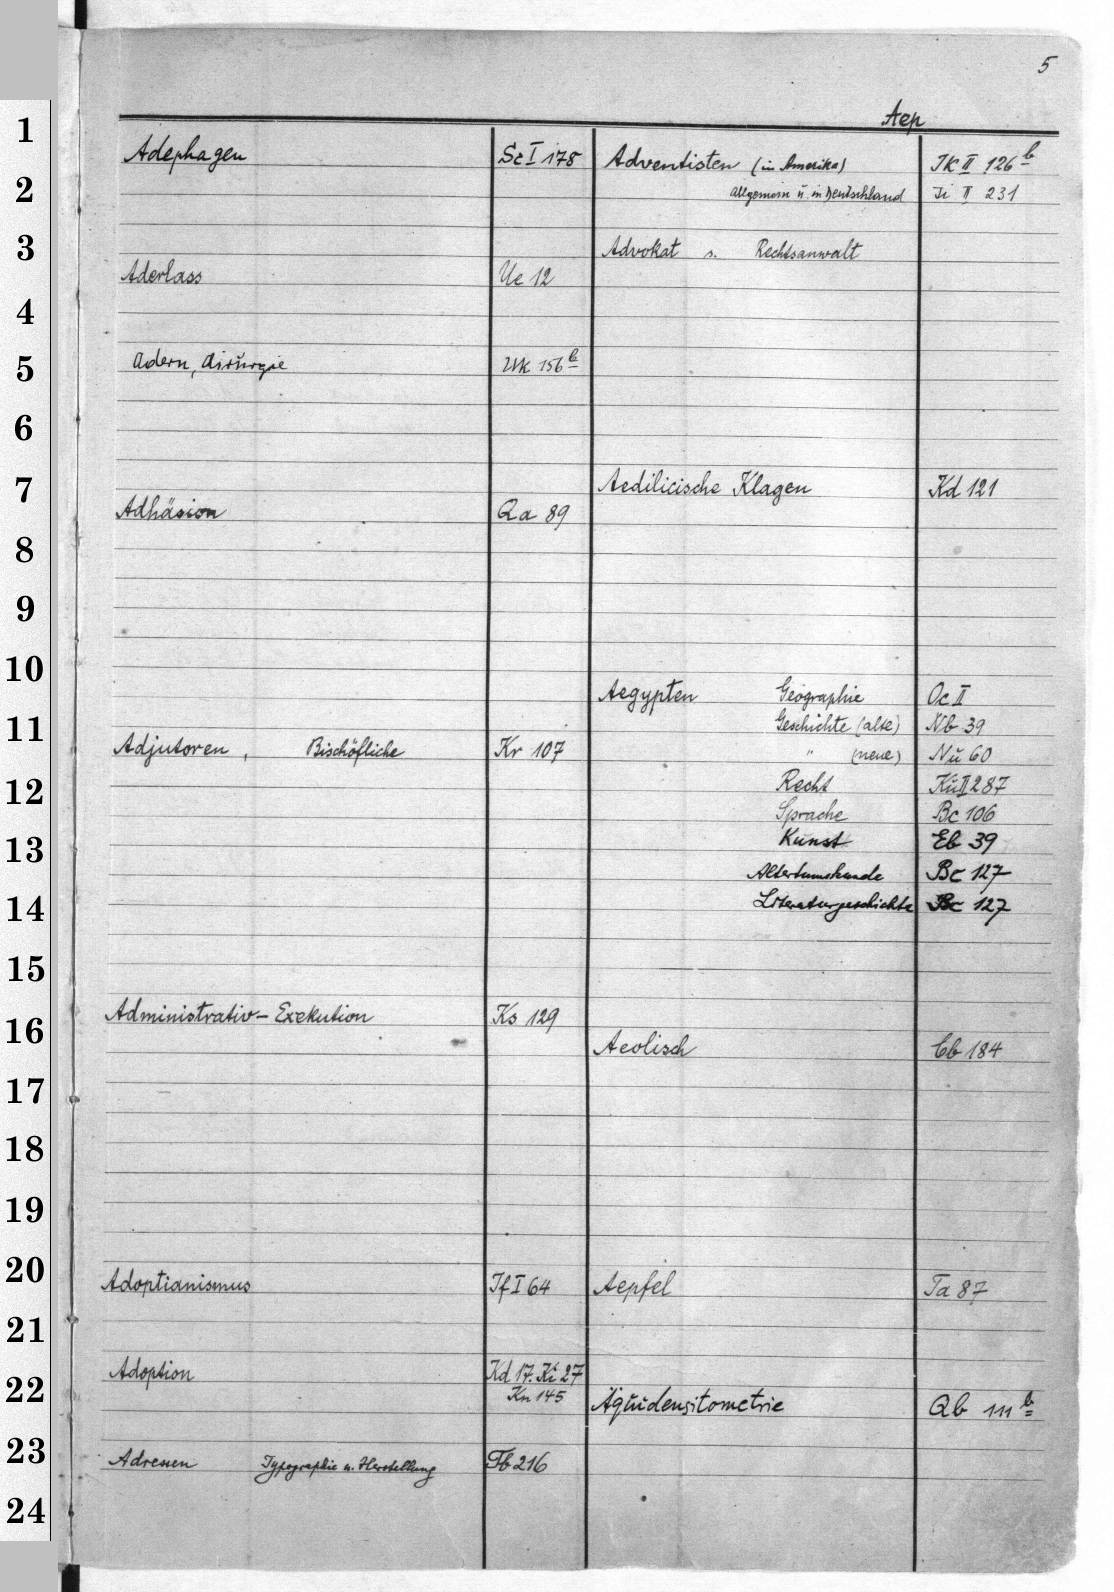 5
Aep
Adephagen Sc I 178
Aderlass Ue 12
Adern, Chirurgie Uk 156 b
Adhäsion Qa 89
Adjutoren, Bischöfliche Kr 107
Administrativ-Exekution Ks 129
Adoptianismus If I 64
Adoption Kd 17. Ki 27
Kn 145
Adressen Typographie u. Herstellung Fb 216
Adventisten (in Amerika) IK II 126 b
Allgemein u. in Deutschland Ii II 231
Advokat s. Rechtsanwalt
Aedilicische Klagen Kd 121
Aegypten Geographie Oc II
Geschichte (alte) Nb 39
" (neue) Nu 60
Recht Ku II 287
Sprache Bc 106
Kunst Eb 39
Altertumskunde Bc 127
Literaturgeschichte Bc 127
Aeolisch Cb 184
Aepfel Ta 87
Äquidensitometrie Qb 111 b
1
2
3
4
5
6
7
8
9
10
11
12
13
14
15
16
17
18
19
20
21
22
23
24